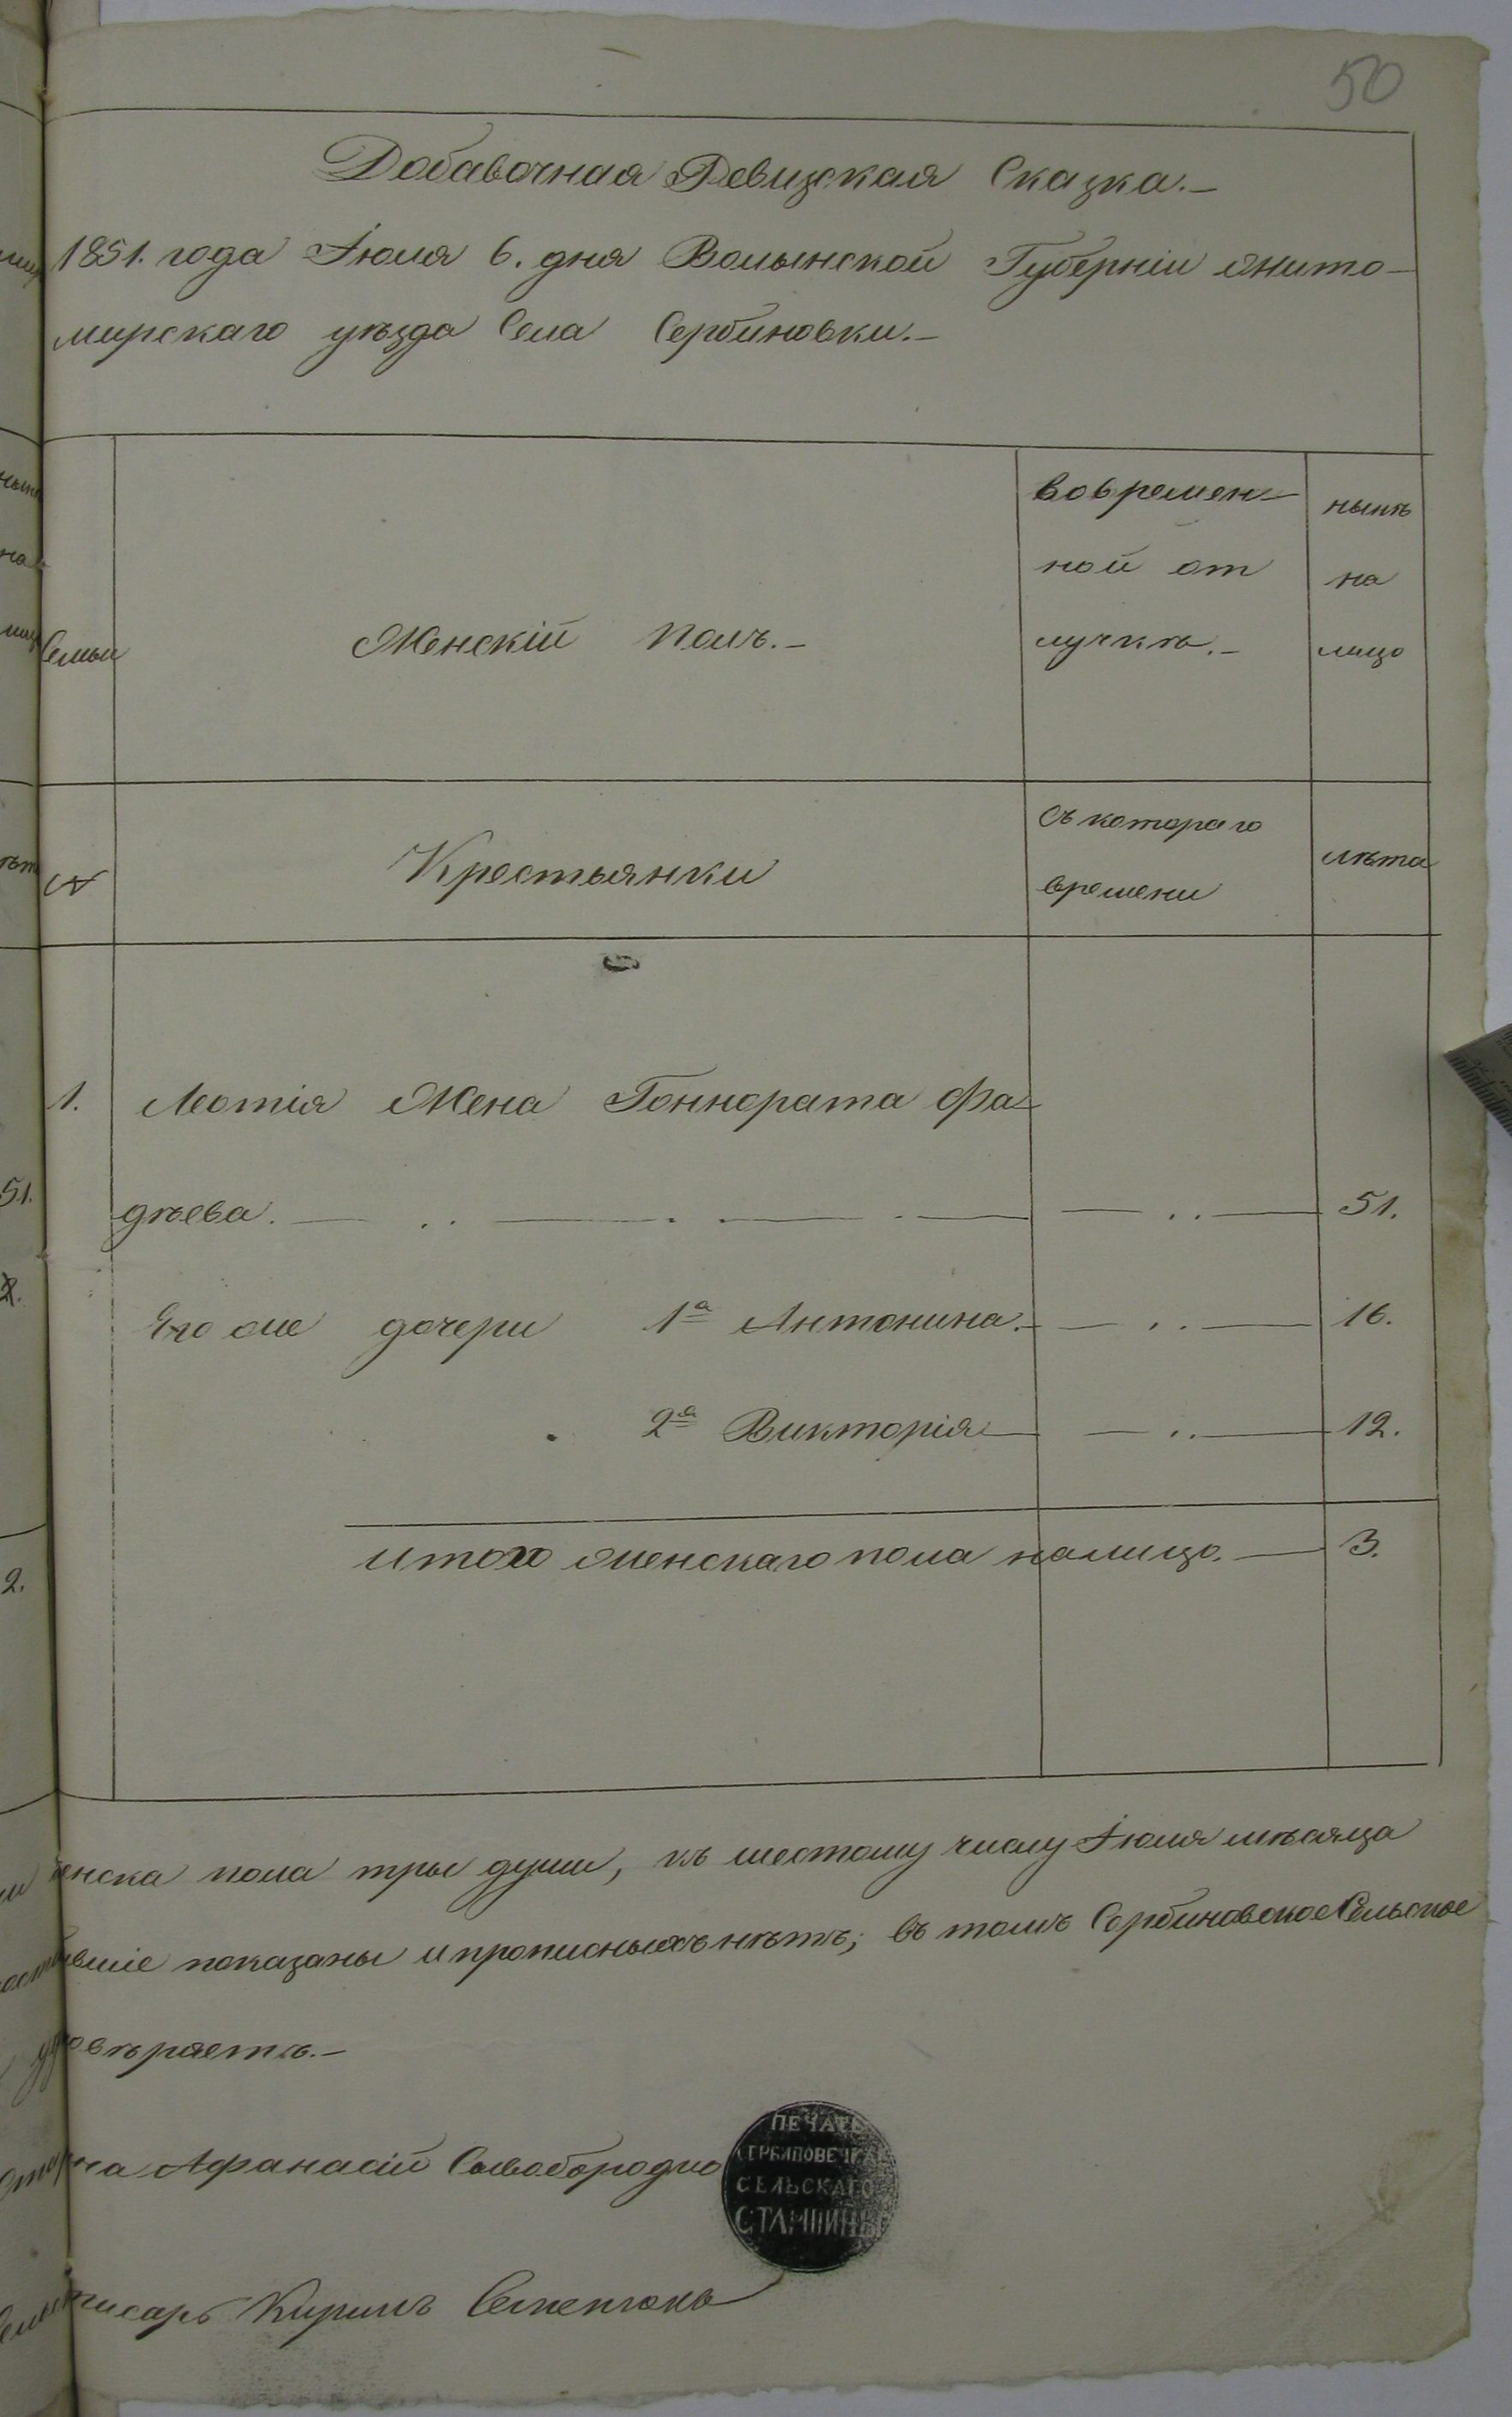 50
Добавочная Ревизская Сказка.–
1851. года Іюля 6. дня Волынской Губерніи Жито–
мирскаго уѣзда Села Сербиновки.–
Семьи
Женскій полъ.–
вовремен–
ной от
лучкѣ.–
нынѣ
на
лицо
№
Крестьянки
Съ котораго
времени
лѣта
1. Жена Гоннората Фа–
дѣева. 51.
Его же дочери 1ª Антонина. 16.
2ª Викторія 12.
Итого женскаго пола налицо. 3.
енска пола тры души, къ шестому числу Іюля мѣсяца
вшіе показаны и прописныхъ нѣтъ; въ томъ Сербиновское Сельское
овѣряетъ.–
на Афанасій
ПЕЧАТЬ
СЕЛЬСКАГО
СТАРШИНЫ
писарь Кирилъ
51.
2.